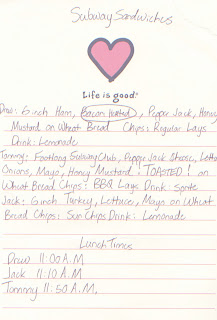 Subway Sandwiches
Life is good.
Drew: 6inch Ham, Bacon Heated, Pepper Jack, Honey
Mustard on Wheat Bread Chips: Regular Lays
Drink: Lemonade
Tommy: Footlong Subway Club, Pepper Jack
Onions, Mayo, Honey Mustard! TOASTED! on
Wheat Bread Chips: BBQ Lays Drink: Sprite
Jack: 6inch Turkey, Lettuce, Mayo on Wheat
Bread Chips: Sun Chips Drink: Lemonade
Lunch Times
Drew 11:00 A.M
Jack 11:10 A.M
Tommy 11:50 A.M.